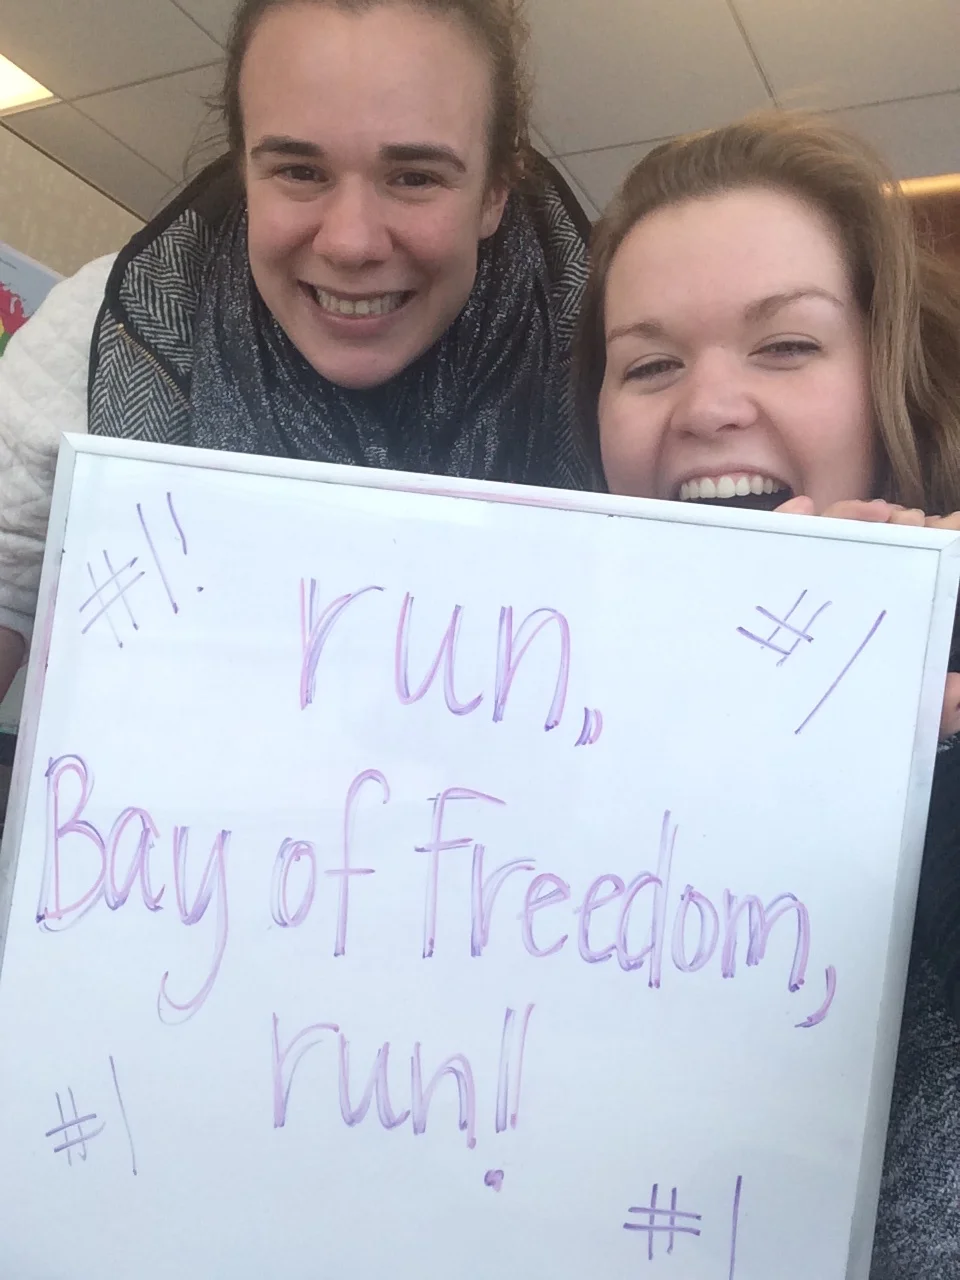 #1! run,, #1
Bay of Freedom,
run!!
#1
#1